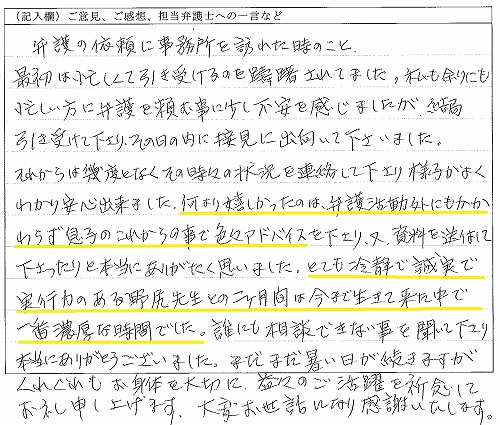 （記入欄）ご意見、ご感想、担当弁護士への一言など
弁護の依頼に事務所を訪れた時のこと、
最初は忙しくて引き受けるのを躊躇されてました。私も余りにも
忙しい方に弁護を頼む事に少し不安を感じましたが、結局
引き受けて下さり、その日の内に接見に出向いて下さいました。
それからは幾度となくその時々の状況を連絡して下さり様子がよく
わかり安心出来ました。何より嬉しかったのは、弁護活動外にもかかわ
らず息子のこれからの事で色々アドバイスを下さり、又、資料を送付して
下さったりと本当にありがたく思いました。とても冷静で誠実で
実行力のある野尻先生との二ヶ月間は今まで生きて来た中で
一番濃厚な時間でした。誰にも相談できない事を聞いて下さり
本当にありがとうございました。まだまだ暑い日が続きますが
くれぐれもお身体を大切に、益々のご活躍を祈念して
お礼申し上げます。大変お世話になり感謝いたします。